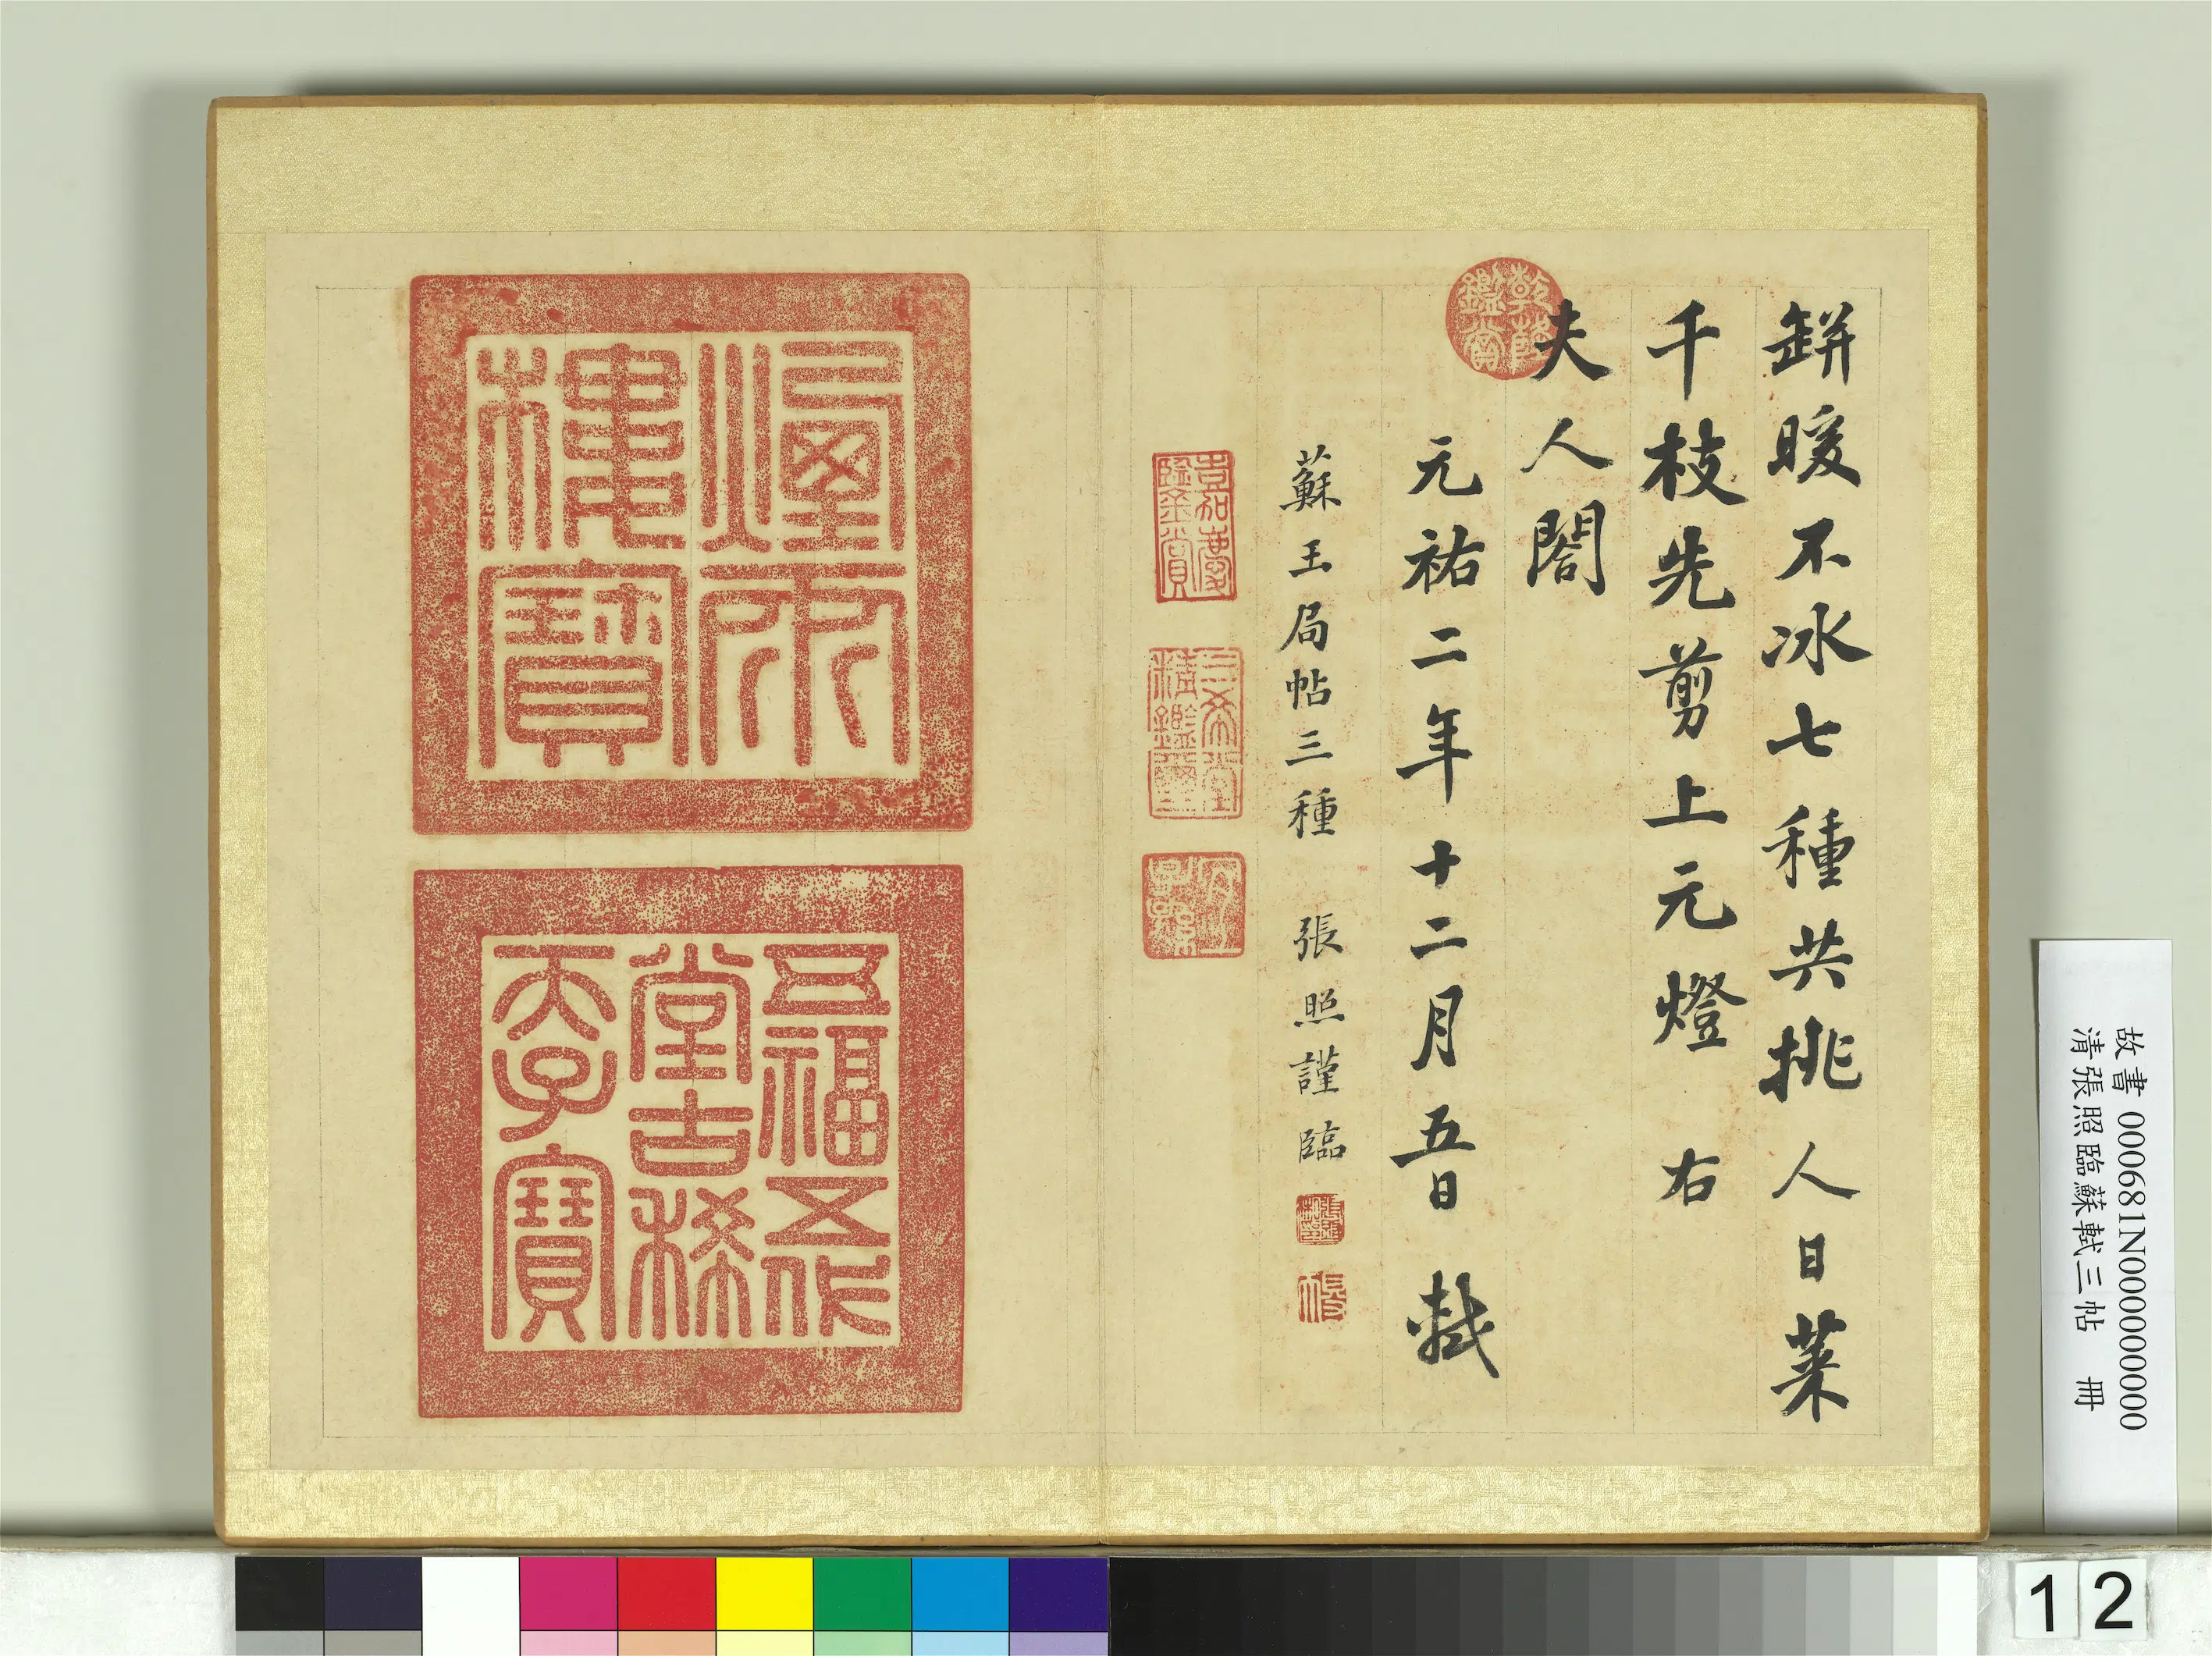 缾暖不冰七種共挑人日菜
千枝先剪上元燈 右
夫人閤
元祐二年十二月五日 軾
蘇玉局帖三種 張照謹臨
乾隆
鑑賞
三希堂
精鑑璽
宜
子孫
煙雨
樓寶
五福五代
堂古稀
天子寶
故書 000681N000000000
清張照臨蘇軾三帖 冊
12